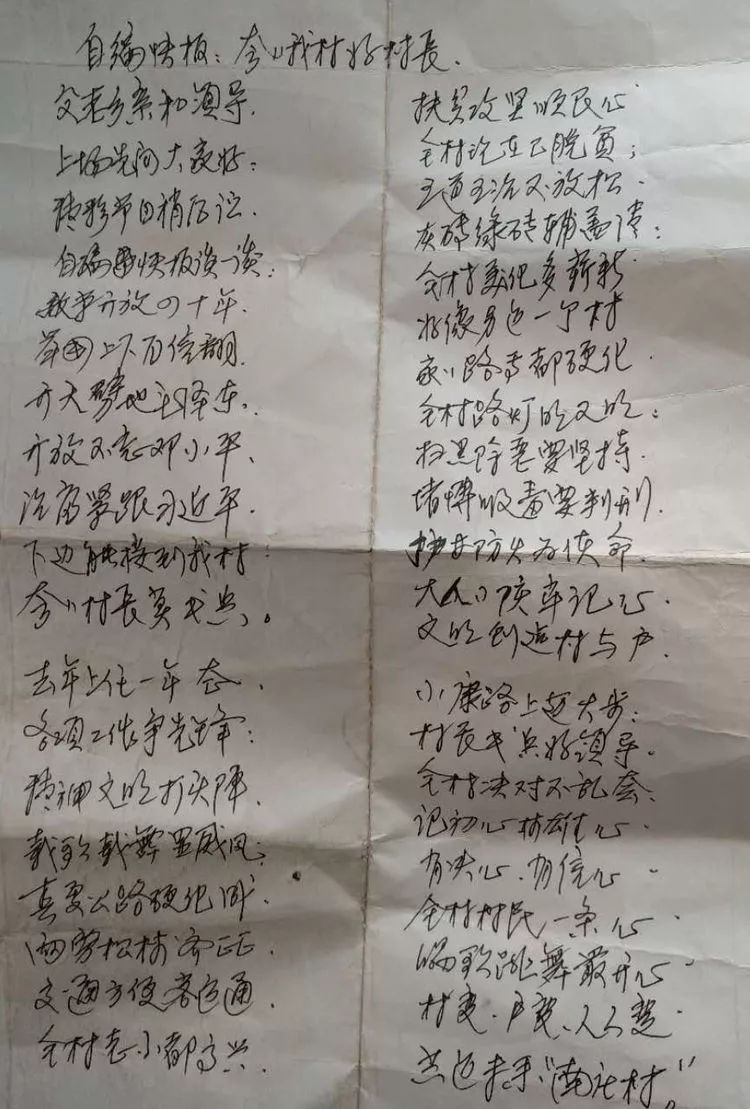 自编快板:夸夸我村好村長.
父老乡亲和领导.
上场先问大家好:
精彩节目稍后论.
自编快板谈一谈:
改革开放四十年.
举国上下百倍翻.
开天劈地毛泽东.
开放不忘邓小平.
治富紧跟习近平.
下边能接到我村
夸夸村長莫戈兵。
去年上任一年态.
各项工作争先锋:
精神文明打头阵.
载歌载舞显威风:
真要公路硬化
两旁松树齐正.
交通方便客运通.
全村老小都高兴.
扶贫攻坚顺民心
全村现在已脱贫;
王道王治又放松.
灰砖绿砖铺盖
全村美化多新新
好像另造一个村
家家路亭都硬化.
全村路灯明又明:
扫黑除恶要坚持.
堵博吸毒要判刑.
护林防火为使命.
大人小孩牢记心.
文明创造村与户.
小康路上迈大步:
村長戈兵好领导.
全村决对不乱套.
记初心树雄心.
有决心、有信心.
全村村民一条心.
唱歌跳舞最开心
村变、户变、人人变.
共迈未来"南社村"。